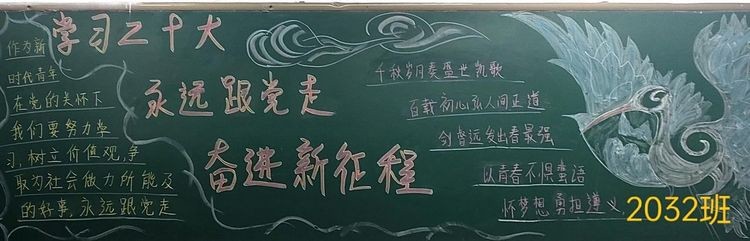 学习二十大
永远跟党走
奋进新征程
作为新
时代青年
在党的关怀下
我们要努力学
习,树立价值观,争
取为社会做力所能及
的好事,永远跟党走
千秋岁月奏盛世凯歌
百载初心弘人间正道
剑誓远发出春最强
以青春不惧蜚语
怀梦想勇担道义
2032班